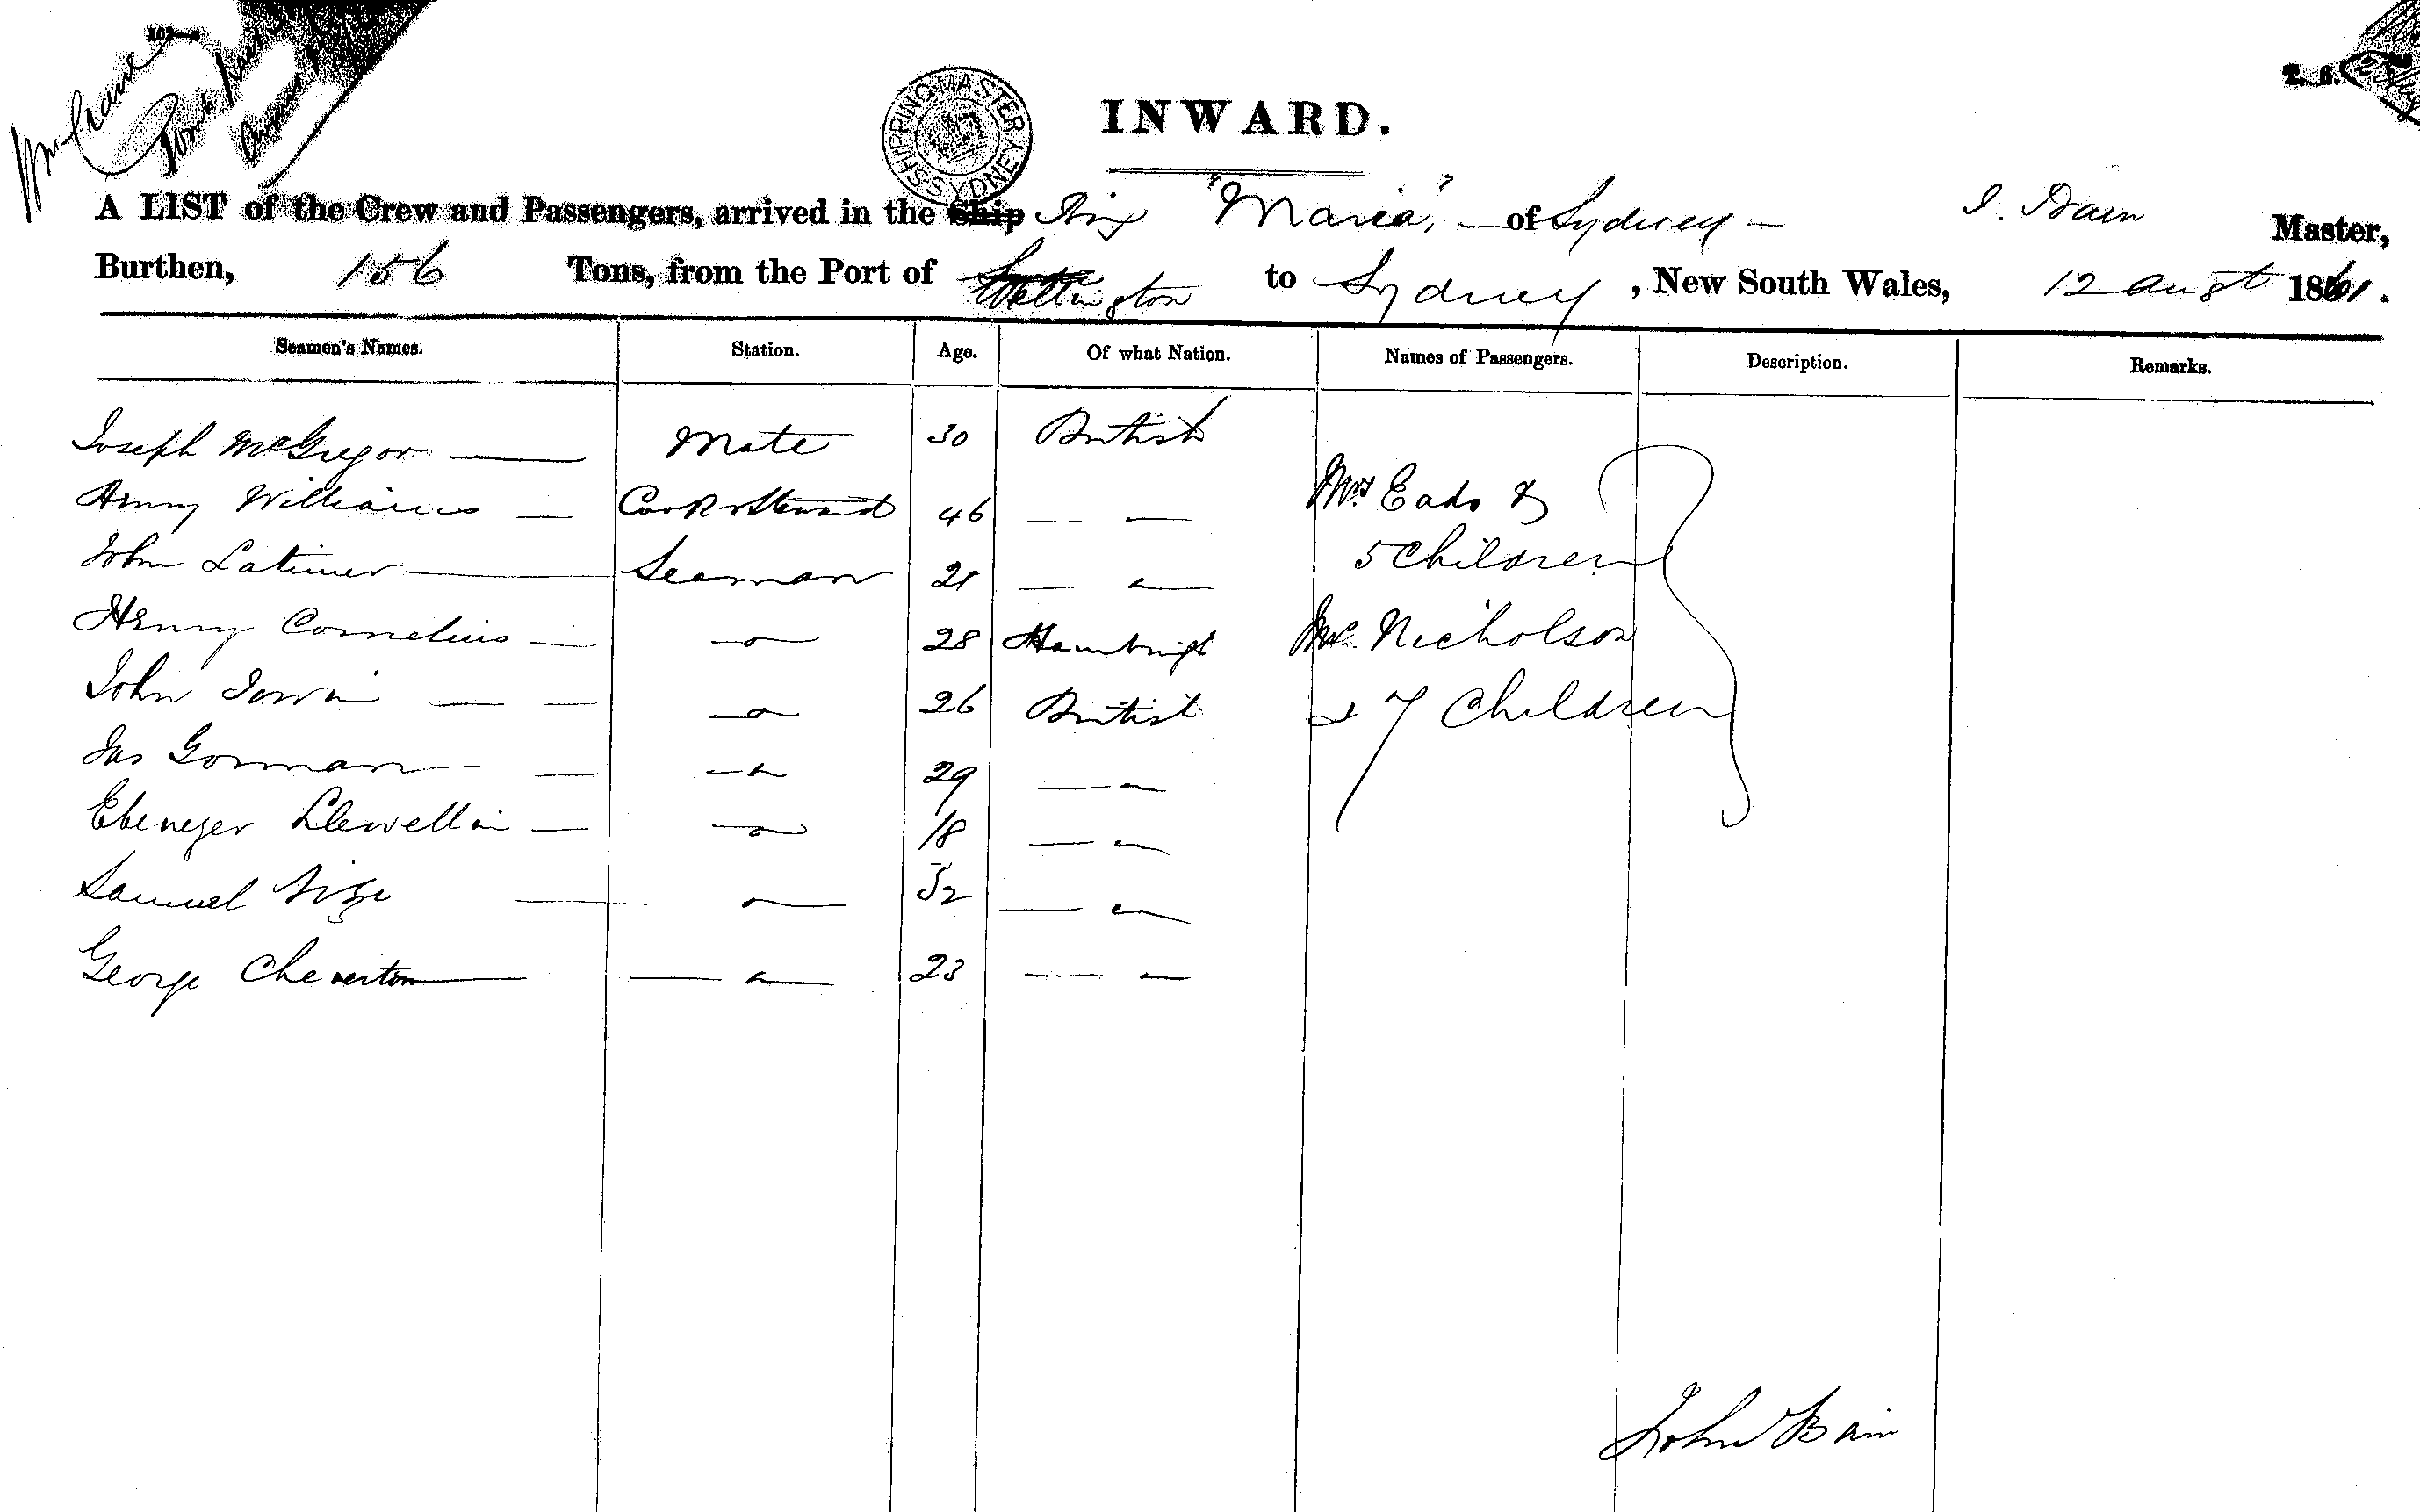 SHIPPING MASTER SYDNEY
INWARD.
A LIST of the Crew and Passengers, arrived in the Ship Brig "Maria," of Sydney J. Bain Master,
Burthen, 156 Tons, from the Port of Wellington to Sydney, New South Wales, 12 Augst 1861.
Seamen's Names. Station. Age. Of what Nation. Names of Passengers. Description. Remarks.
Joseph McGregor Mate 30 British
Henry Williams Cook & Steward 46 Mrs Eads &
John Latimer Seaman 21 5 Children
Henry Cornelius 28 Nicholson
John 26 British & 7 Children
Jas Gorman 29
Ebenezer Llewellin 18
Samuel
George Cheverton 23
John Bain